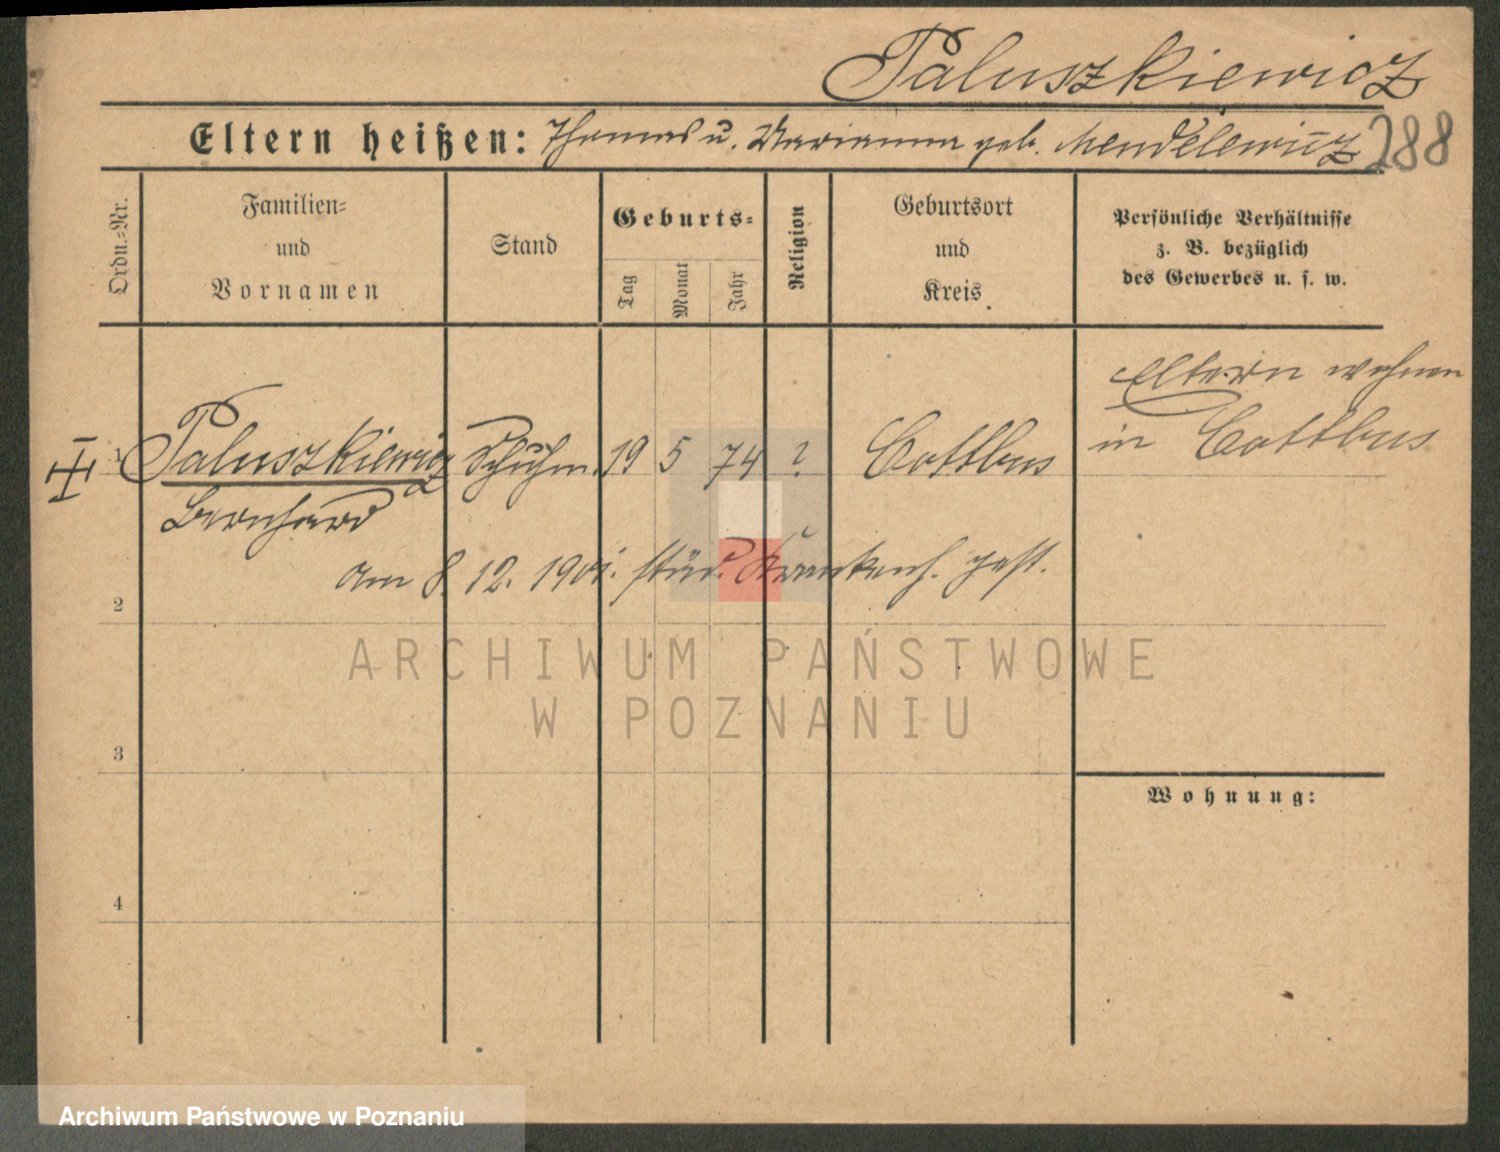 Paluszkiewicz
Eltern heißen: Thomas u. Marianna geb. Mendelewicz 288
Ordn.-Nr.
Familien-
und
Vornamen
Stand
Geburts-
Tag
Monat
Jahr
Religion
Geburtsort
und
Kreis
Persönliche Verhältnisse
z. B. bezüglich
des Gewerbes u. s. w.
1 Paluszkiewicz Schuhm. 19 5 74 ? Cottbus
Bernhard
Eltern wohnen
in Cottbus
am 8. 12. 1901. städ. Krankenh. gest.
2
3
4
Wohnung:
ARCHIWUM PAŃSTWOWE
W POZNANIU
Archiwum Państwowe w Poznaniu